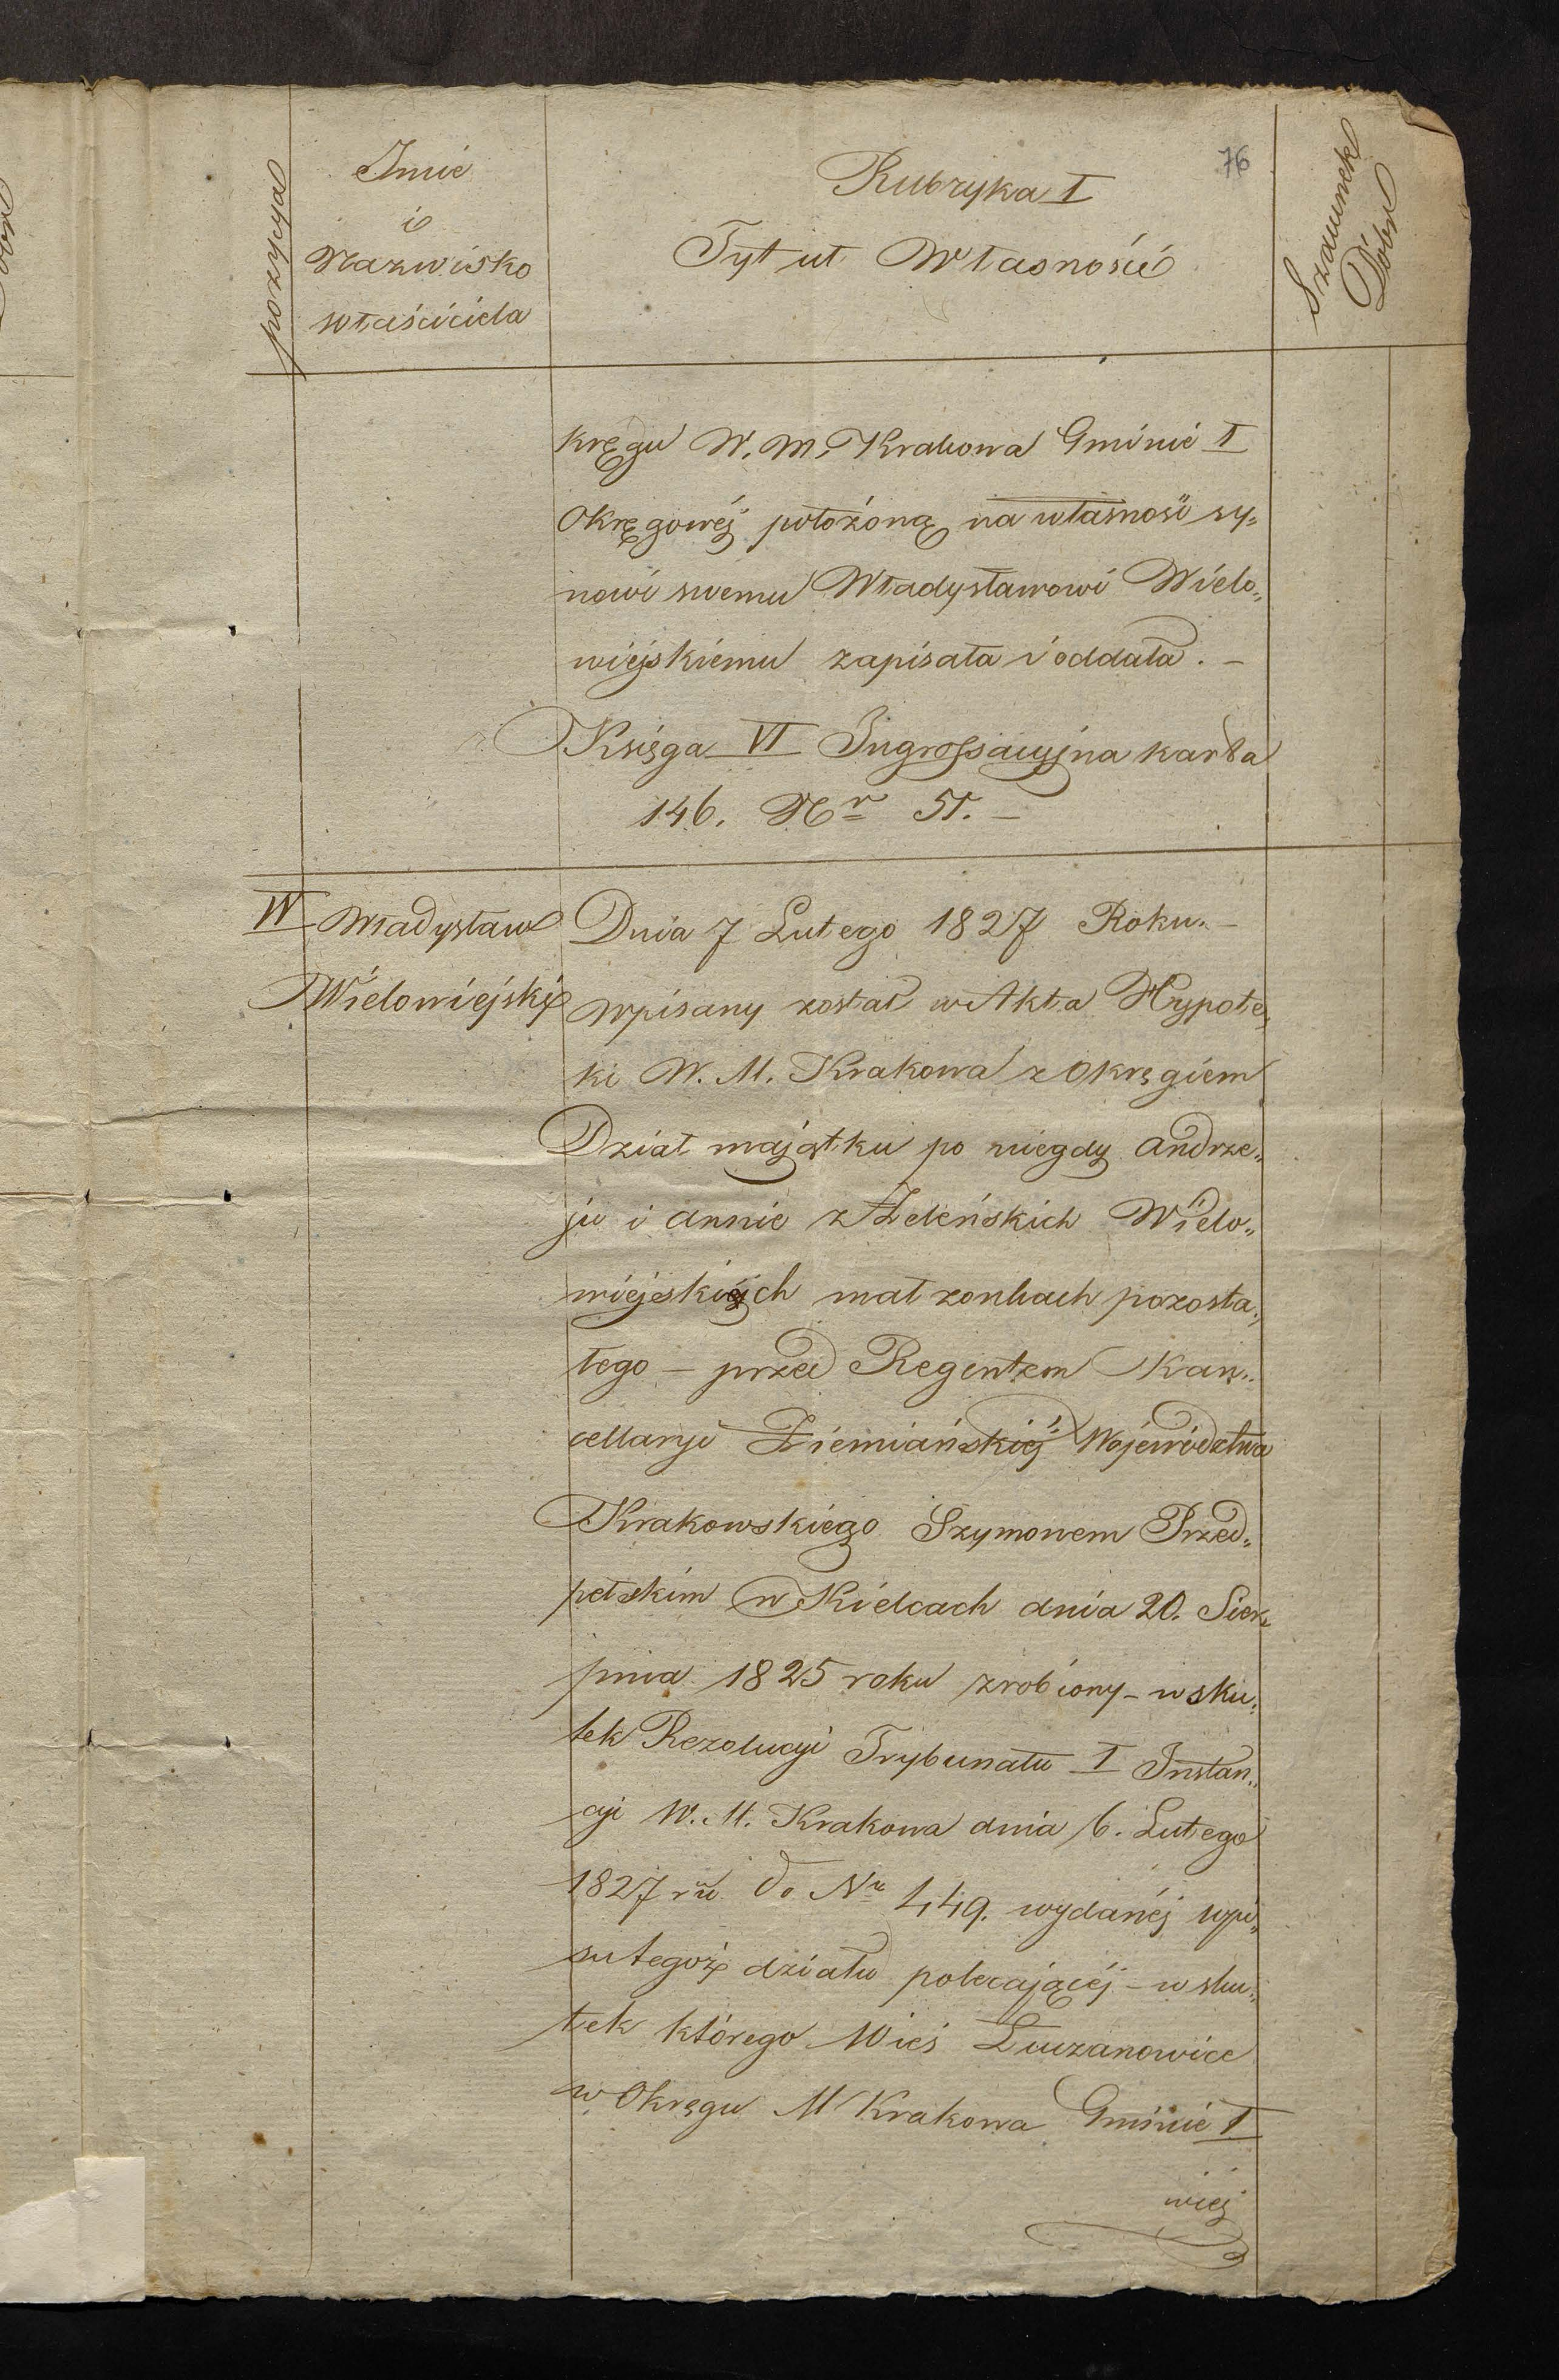 76
pozycya
Imie
i
Nazwisko
właściciela
Rubryka I
Tytuł Własności
Szacunek
Dóbr
kręgu W. M. Krakowa Gminie I
Okręgowéj położoną na własność sy„
nowi swemu Władysławowi Wielo„
wiejskiemu zapisała i oddała. –
Księga VI Ingrossacyjna karta
146. Nr 51. –
IV Władysław
Wielowiejski
Dnia 7 Lutego 1827 Roku. –
wpisany został w Akta Hypote„
ki W. M. Krakowa z Okręgiem
Dział majątku po niegdy Andrze„
ju i Annie z Zeleńskich Wielo„
wiejskich małżonkach pozosta„
łego – przed Regentem Kan„
cellaryi Ziemiańskiéj Województwa
Krakowskiego Szymonem Przed„
pełskim w Kielcach dnia 20. Sier„
pnia 1825 roku zrobiony – w sku„
tek Rezolucyi Trybunału I Instan„
cyi W. M. Krakowa dnia 6. Lutego
1827 ru do Nr 449. wydanéj wpi„
su tegoż działu polecającéj – w sku„
tek którego Wieś Łuczanowice
w Okręgu M Krakowa Gminie I
wiej